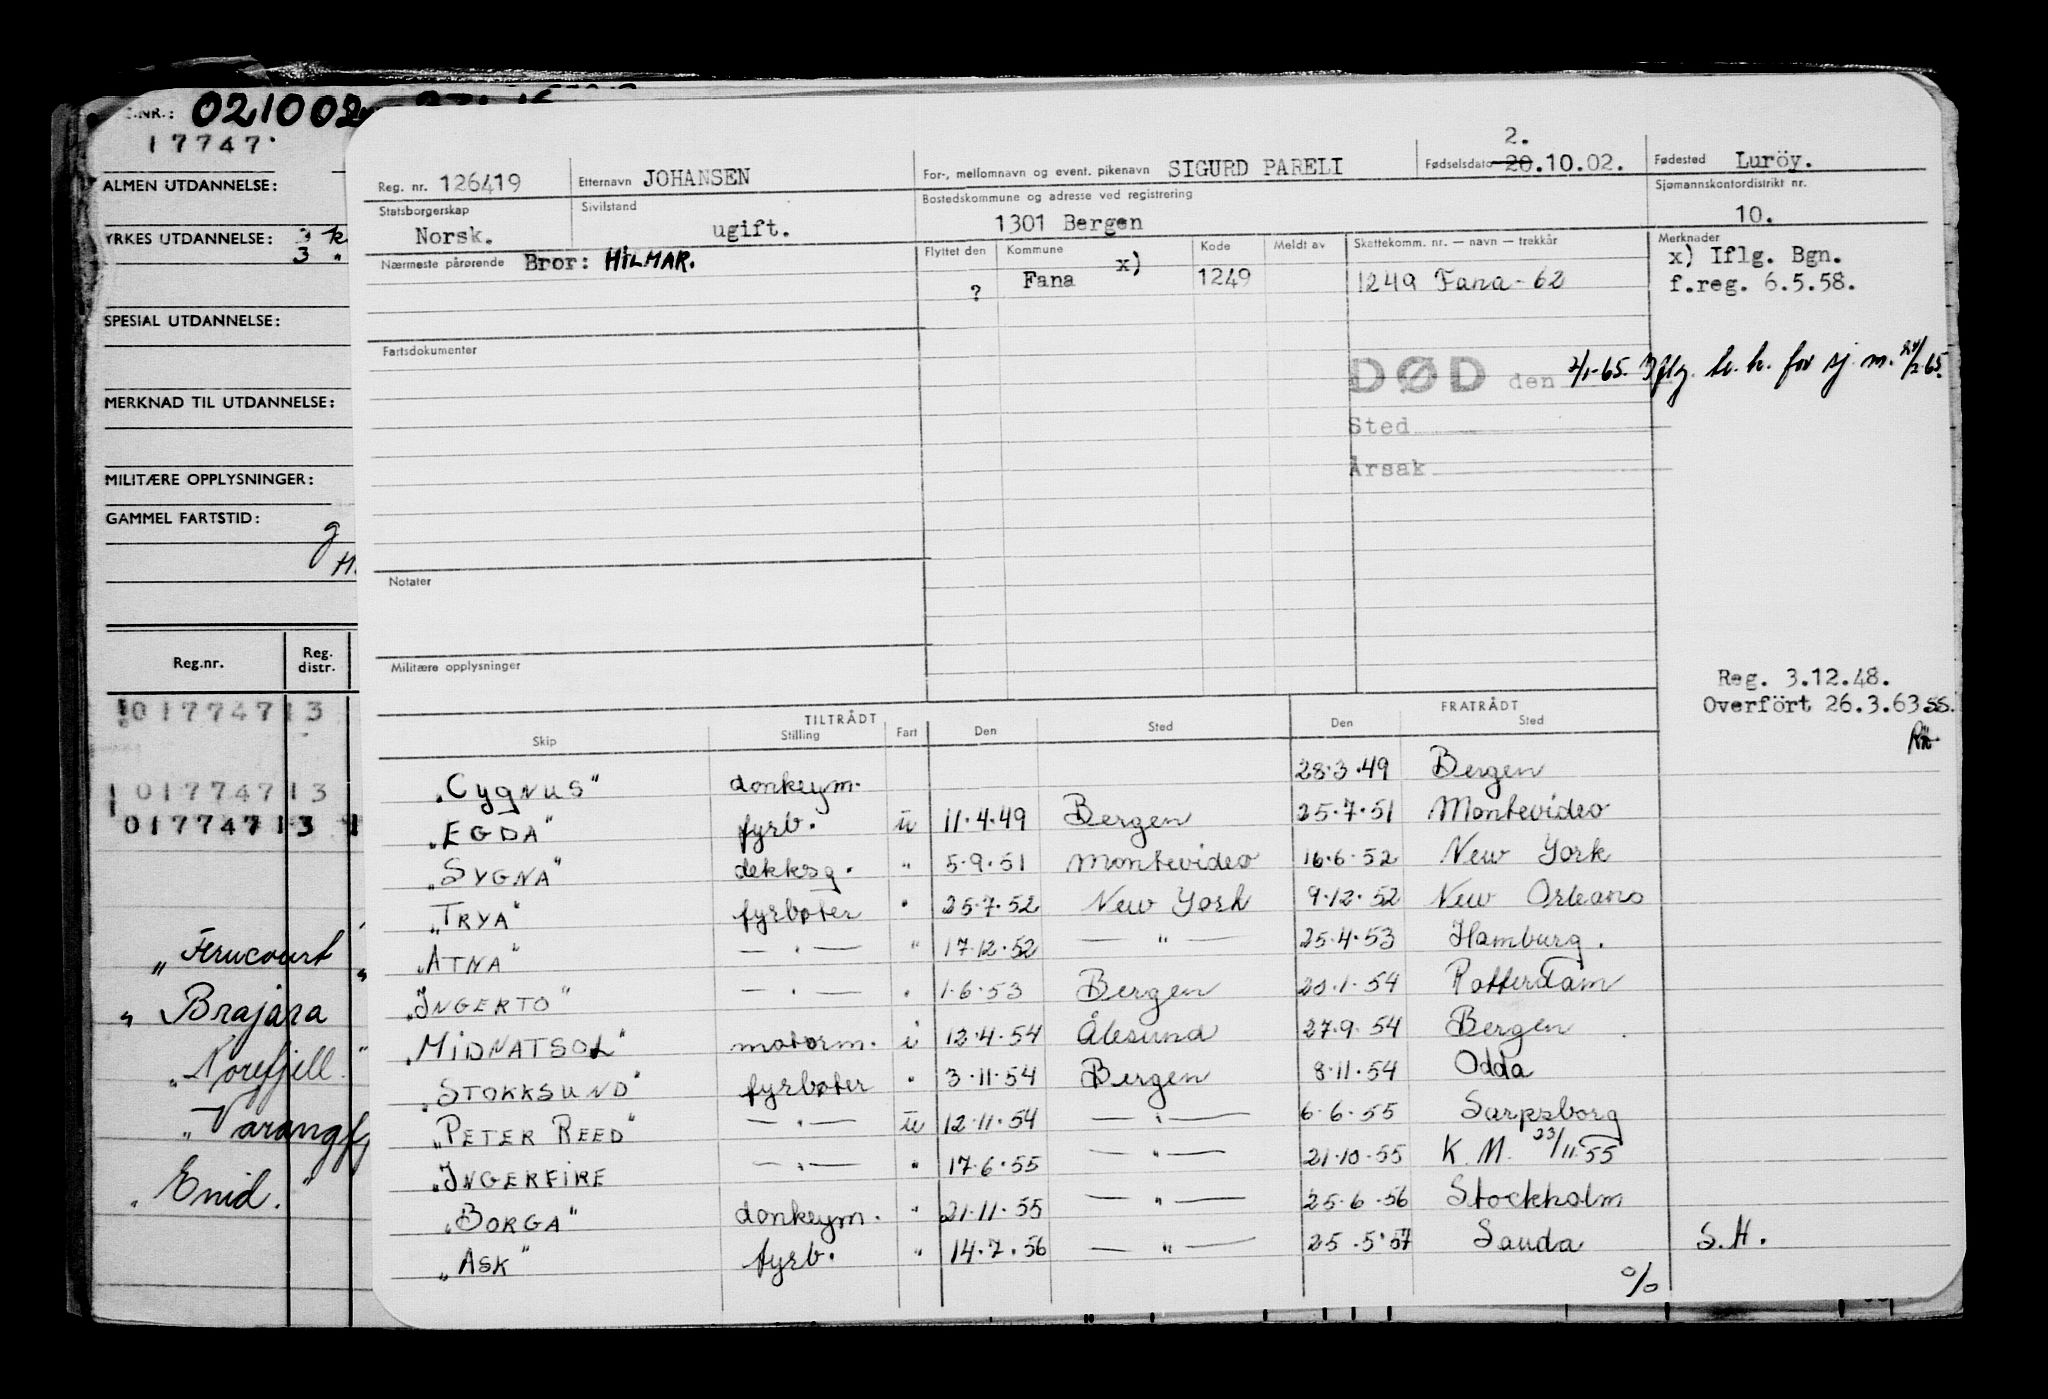 .NR.: 021002
17747
ALMEN UTDANNELSE:
YRKES UTDANNELSE: 3
3 "
SPESIAL UTDANNELSE:
MERKNAD TIL UTDANNELSE:
MILITÆRE OPPLYSNINGER:
GAMMEL FARTSTID:
Reg.nr. Reg. distr.
017747 13
017747 13
017747 13
"Ferncourt"
"Brajara
"Norefjell"
"Varangfj
"Enid."
Reg. nr. 126419 Etternavn JOHANSEN For-, mellomnavn og event. pikenavn SIGURD PARELI Fødselsdato 2. 20.10.02. Fødested Luröy.
Statsborgerskap Norsk. Sivilstand ugift. Bostedskommune og adresse ved registrering 1301 Bergen Sjømannskontordistrikt nr. 10.
Nærmeste pårørende Bror: HILMAR. Flyttet den Kommune Kode Meldt av Skattekomm. nr. — navn — trekkår Merknader
? Fana x) 1249 1249 Fana - 62 x) Iflg. Bgn.
f.reg. 6.5.58.
Fartsdokumenter
DØD den 2/1-65. Iflg. h. k. for sj. m. 24/2.65.
Sted
Årsak
Notater
Militære opplysninger
Reg. 3.12.48.
Overfört 26.3.63 SS.
TILTRÅDT FRATRÅDT
Skip Stilling Fart Den Sted Den Sted
"CYGNUS" donkeym. 28.3.49 Bergen
"EGDA" fyrb. u 11.4.49 Bergen 25.7.51 Montevideo
"SYGNA" dekksg. " 5.9.51 Montevideo 16.6.52 New York
"TRYA" fyrbøter " 25.7.52 New York 9.12.52 New Orleans
"ATNA" — " — " 17.12.52 — " — 25.4.53 Hamburg.
"INGERTO" — " — " 1.6.53 Bergen 20.1.54 Rotterdam
"MIDNATSOL" motorm. i 12.4.54 Ålesund 27.9.54 Bergen
"STOKKSUND" fyrbøter " 3.11.54 Bergen 8.11.54 Odda
"PETER REED" — " — u 12.11.54 — " — 6.6.55 Sarpsborg
"INGERFIRE — " — " 17.6.55 — " — 21.10.55 K.M. 23/11.55
"BORGA" donkeym. " 21.11.55 — " — 25.6.56 Stockholm
"ASK" fyrb. " 14.7.56 — " — 25.5.57 Sauda S.H.
%